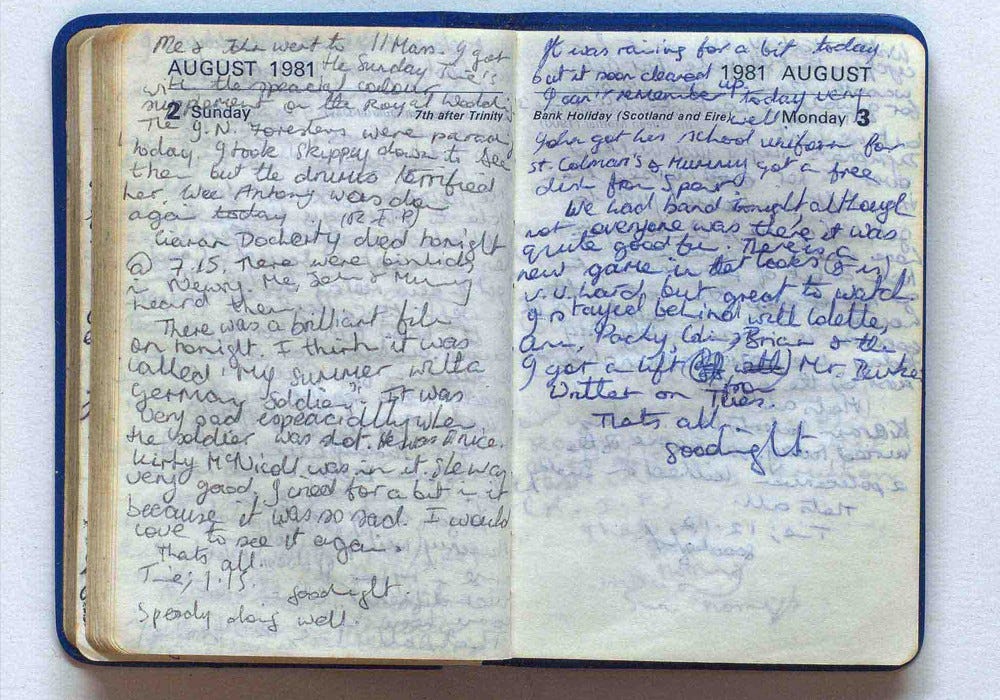 Me & the went to 11 Mass. I got
AUGUST 1981
the Sunday Time's
with the special colour
supplement on the Royal Wedding
2 Sunday
7th after Trinity
The I.N. Foresters were paradin
today. I took Skippy down to see
them but the drums terrified
her. Wee Antony was down
again today. (R.I.P)
Ciaran Docherty died tonight
@ 7.15. There were binlids
in Newry. Me, & Mummy
heard them.
There was a brilliant film
on tonight. I think it was
called "My Summer with a
German Soldier". It was
very sad espeacially when
the soldier was shot. He was nice.
Kirsty McNicoll was in it. She was
very good. I cried for a bit in it
because it was so sad. I would
love to see it again.
Thats all.
Time; 1.15.
goodnight.
Speedy doing well.
It was raining for a bit today
but it soon cleared up
1981 AUGUST
I can't remember today very
well
Bank Holiday (Scotland and Eire)
Monday 3
John got his school uniform for
St. Colman's & Mummy got a free
dish from Spar.
We had band tonight although
not everyone was there it was
quite good fun. There is a
new game in that looks (& is)
v. v. hard but great to watch
I stayed behind with Colette,
Ann, Packy, Brian & the
I got a lift Mr. Burke
Written on Tues.
Thats all,
goodnight